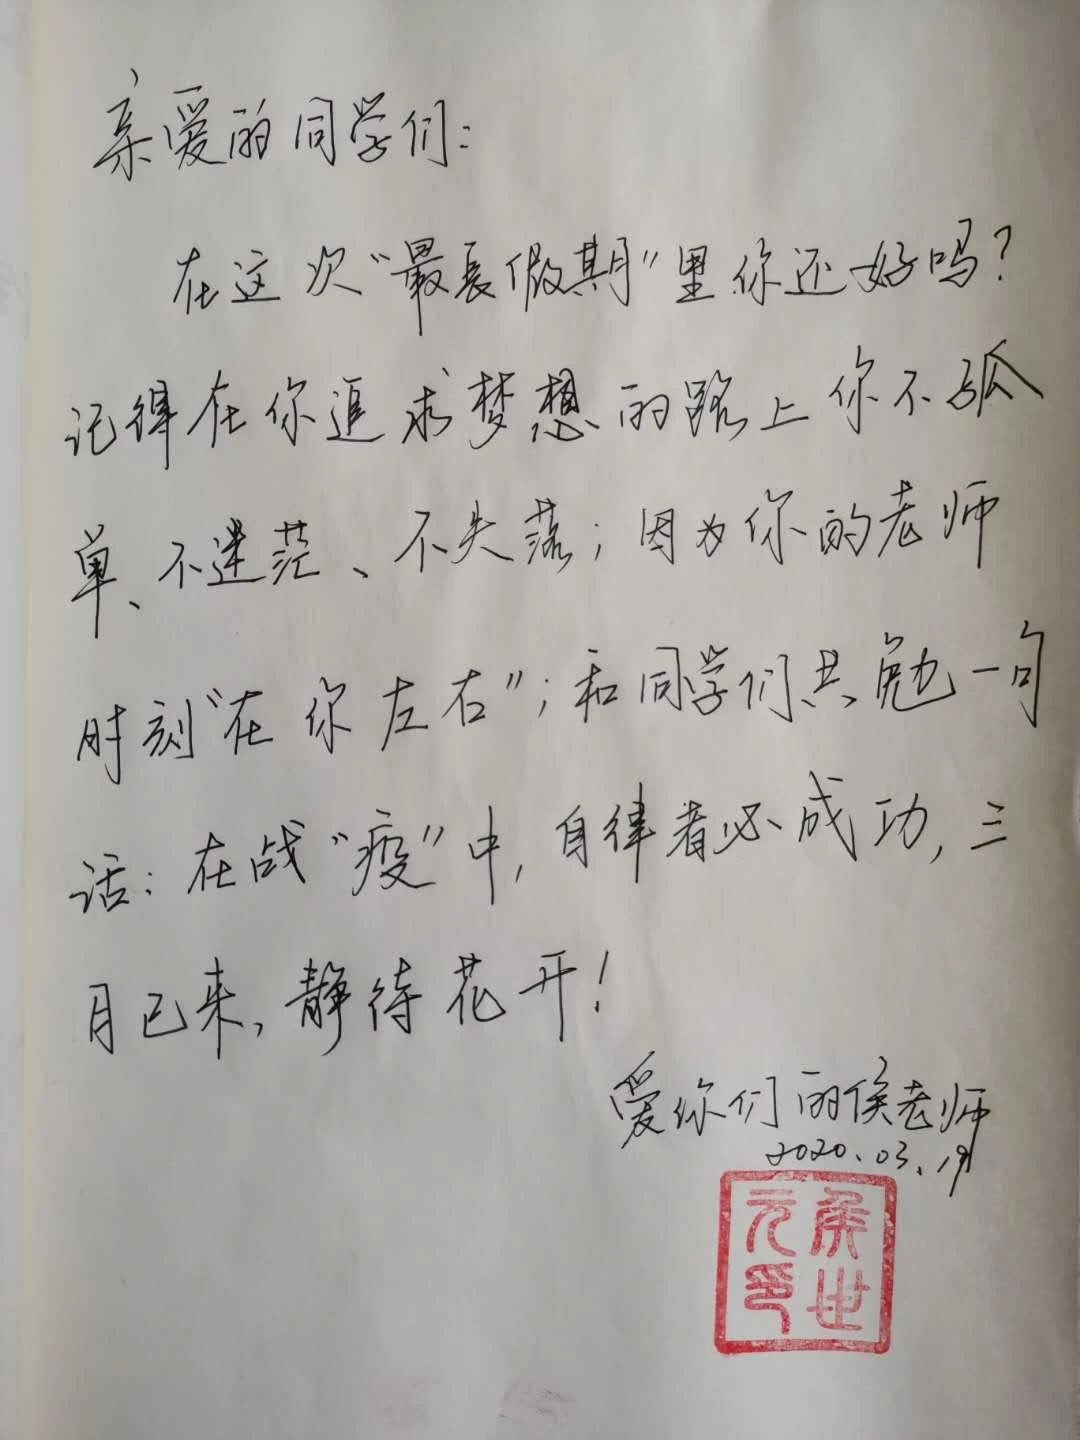 亲爱的同学们:
在这次“最长假期”里你还好吗?
记得在你追求梦想的路上你不孤
单、不迷茫、不失落;因为你的老师
时刻“在你左右”;和同学们共勉一句
话:在战“疫”中,自律者必成功,三
月已来,静待花开!
爱你们的侯老师
2020.03.19
侯世
元印